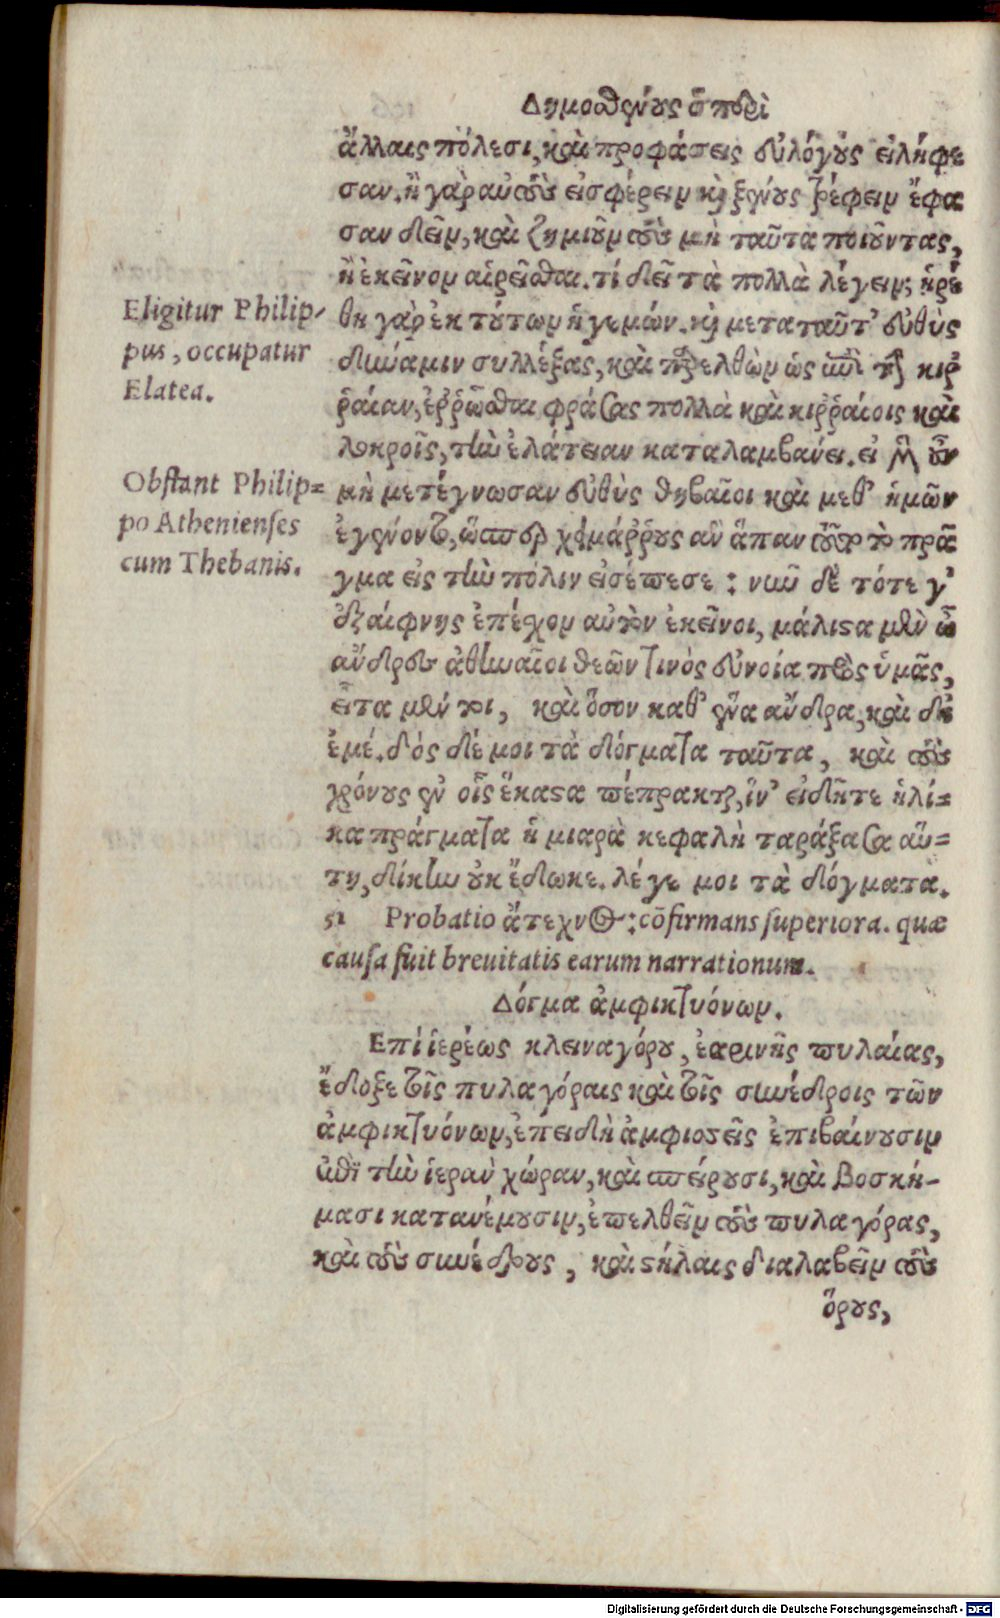 Δημοσθένους ὁ περὶ
ἄλλαις πόλεσι, καὶ προφάσεις εὐλόγους εἰλήφε
σαν. ἢ γὰρ αὐτοὺς εἰσφέρειν καὶ ξένους τρέφειν ἔφα
σαν δεῖν, καὶ ζημιοῦν τοὺς μὴ ταῦτα ποιοῦντας,
ἢ ἐκεῖνον αἱρεῖσθαι. τί δεῖ τὰ πολλὰ λέγειν; ᾑρέ
Eligitur Philip-
θη γὰρ ἐκ τούτων ἡγεμών. καὶ μετὰ ταῦτ' εὐθὺς
pus, occupatur
δύναμιν συλλέξας, καὶ παρελθὼν ὡς ἐπὶ τὴν κιρ
Elatea.
ῥαίαν, ἐῤῥῶσθαι φράσας πολλὰ καὶ κιῤῥαίοις καὶ
λοκροῖς, τὴν ἐλάτειαν καταλαμβάνει. εἰ μὲν οὖν
Obstant Philip=
μὴ μετέγνωσαν εὐθὺς θηβαῖοι καὶ μεθ' ἡμῶν
po Athenienses
ἐγένοντο, ὥσπερ χειμάῤῥους ἂν ἅπαν τοῦτο τὸ πρᾶ
cum Thebanis.
γμα εἰς τὴν πόλιν εἰσέπεσε : νῦν δὲ τότε γ'
ἐξαίφνης ἐπέσχον αὐτὸν ἐκεῖνοι, μάλιστα μὲν ὦ
ἄνδρες ἀθηναῖοι θεῶν τινὸς εὐνοία πρὸς ὑμᾶς,
εἶτα μέντοι, καὶ ὅσον καθ' ἕνα ἄνδρα, καὶ δι'
ἐμέ. δὸς δέ μοι τὰ δόγματα ταῦτα, καὶ τοὺς
χρόνους ἐν οἷς ἕκαστα πέπρακται, ἵν' εἰδῆτε ἡλί=
κα πράγματα ἡ μιαρὰ κεφαλὴ ταράξασα αὕ=
τη, δίκην οὐκ ἔδωκε. λέγε μοι τὰ δόγματα.
51 Probatio ἄτεχνος : cōfirmans superiora. quæ
causa fuit breuitatis earum narrationum.
Δόγμα ἀμφικτυόνων.
Επὶ ἱερέως κλειναγόρου, ἐαρινῆς πυλαίας,
ἔδοξε τοῖς πυλαγόραις καὶ τοῖς συνέδροις τῶν
ἀμφικτυόνων, ἐπειδὴ ἀμφισσεῖς ἐπιβαίνουσιν
ἐπὶ τὴν ἱερὰν χώραν, καὶ σπείρουσι, καὶ βοσκή-
μασι κατανέμουσιν, ἐπελθεῖν τοὺς πυλαγόρας,
καὶ τοὺς συνέδρους, καὶ στήλαις διαλαβεῖν τοὺς
ὅρους,
Digitalisierung gefördert durch die Deutsche Forschungsgemeinschaft - DFG